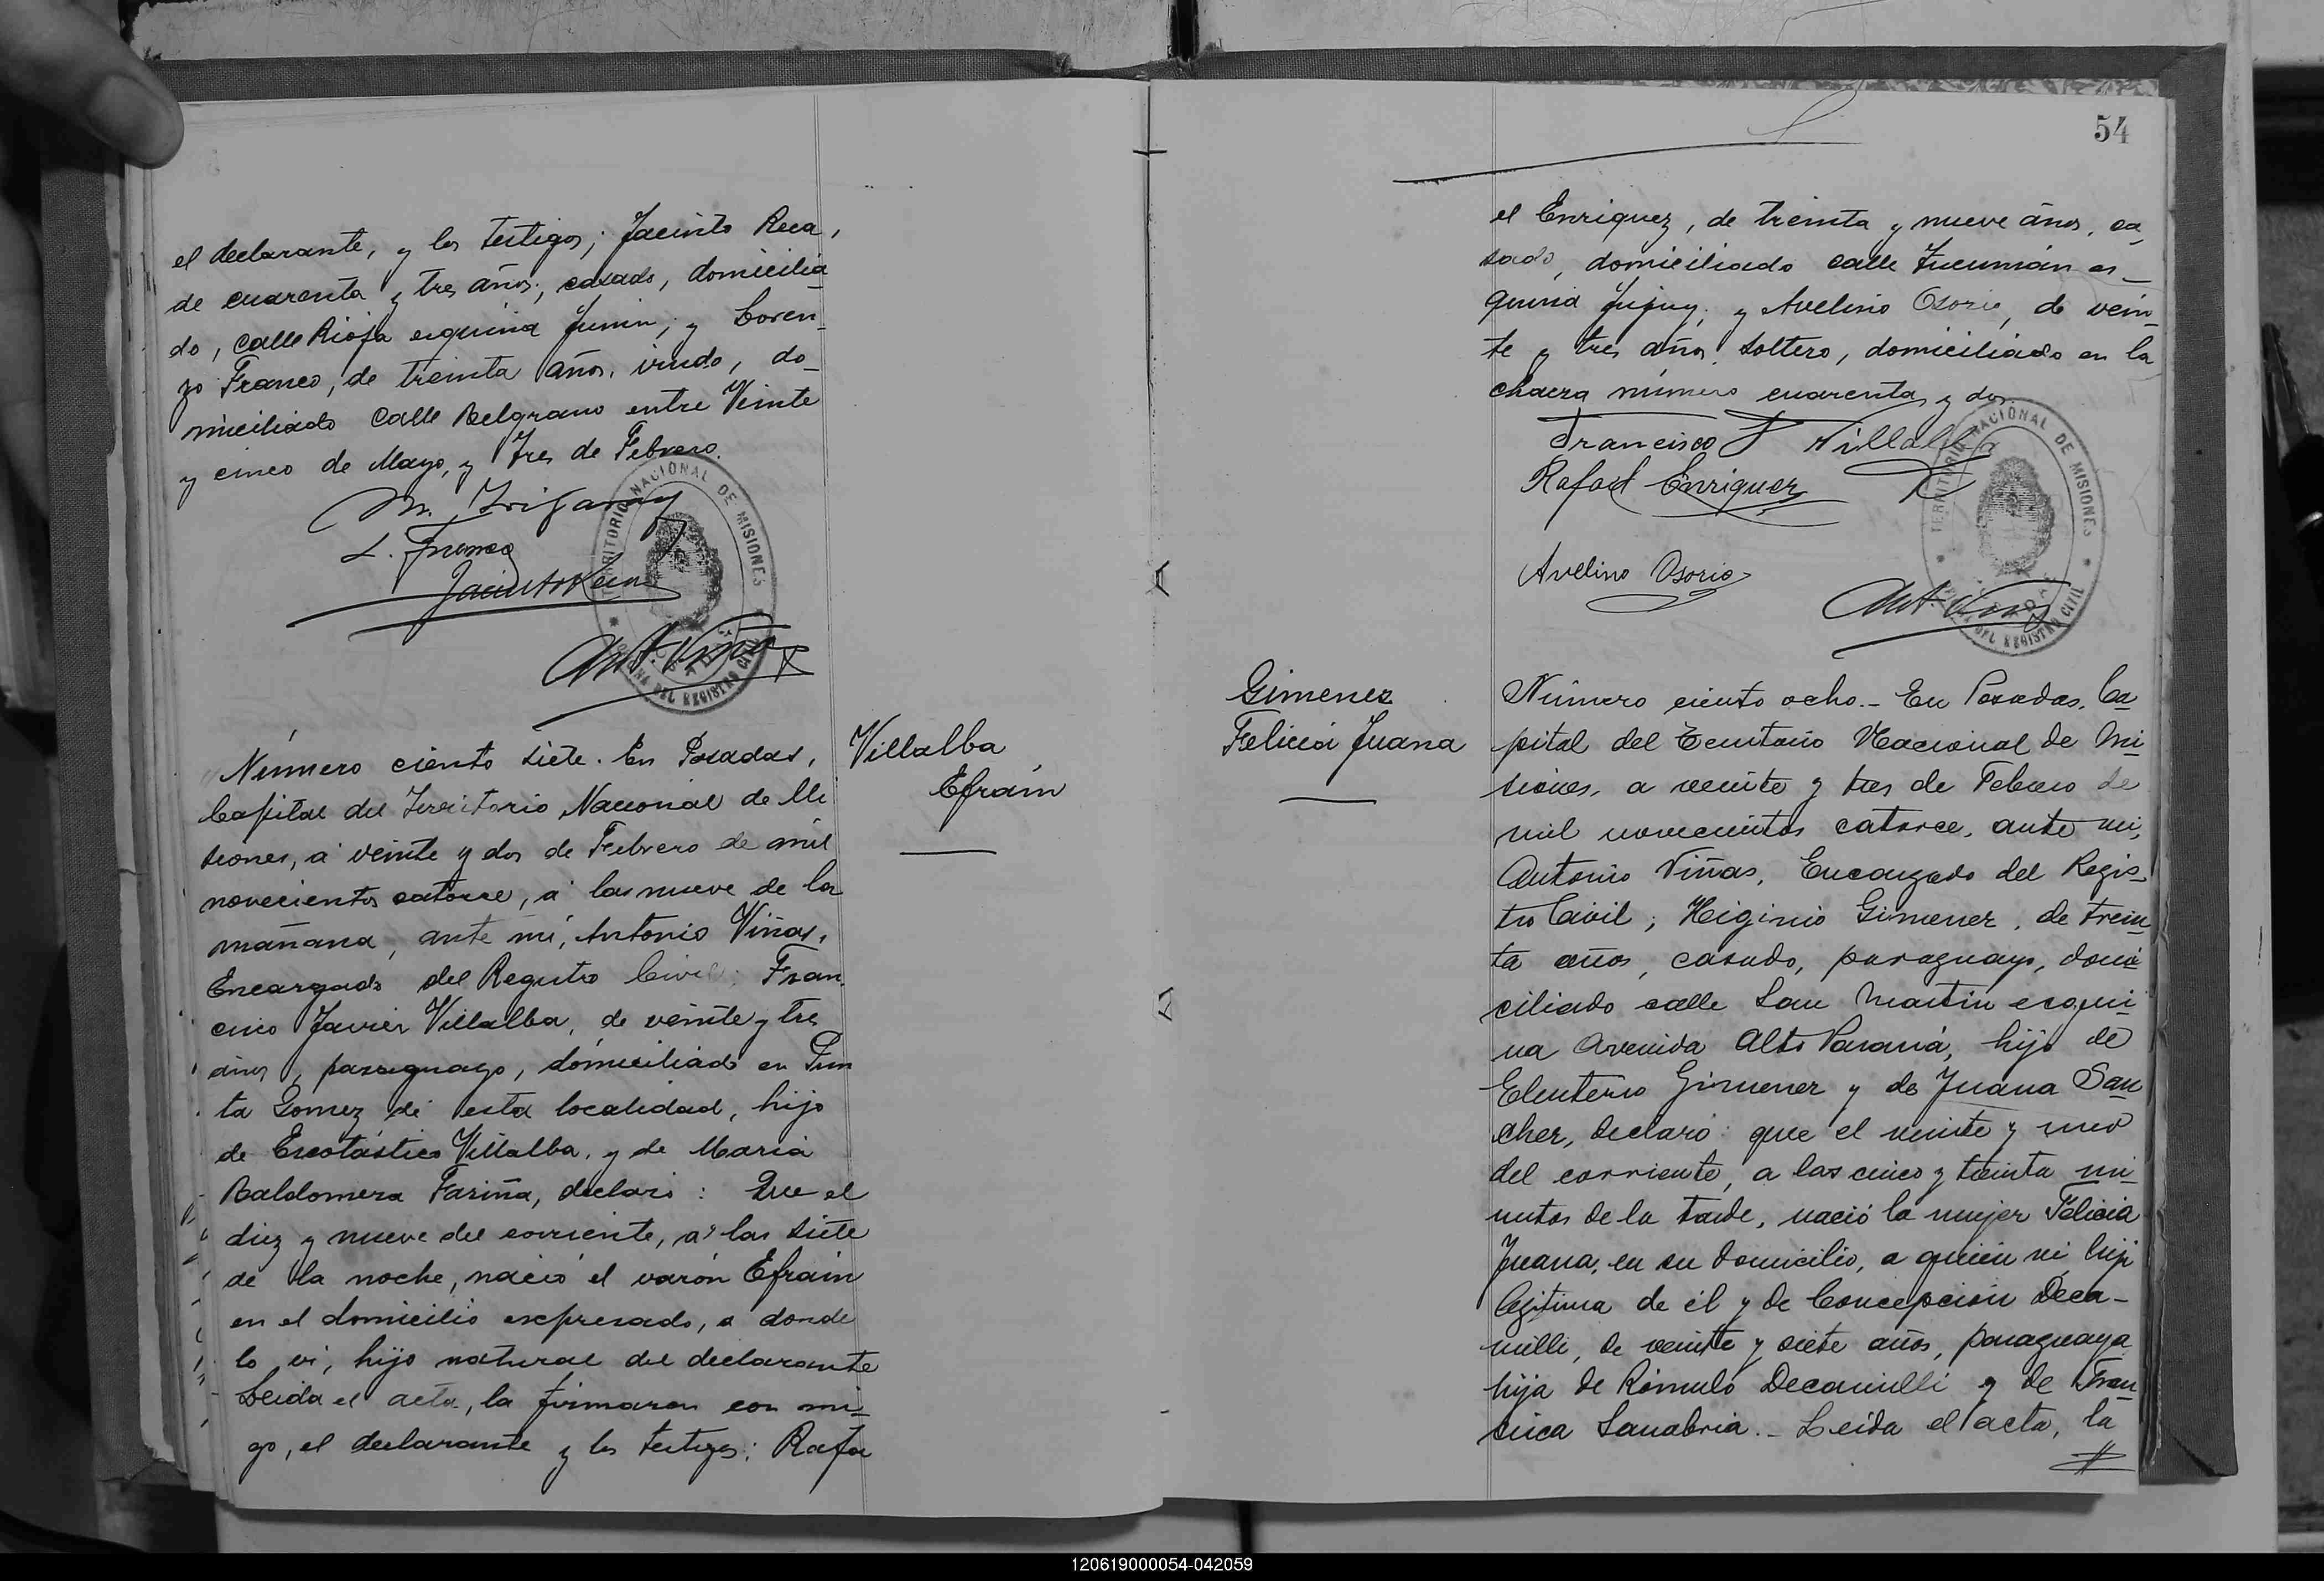 el declarante, y los testigos; Jacinto Reca,
de cuarenta y tres años, casado, domicilia
do, calle Rioja esquina Junin; y Loren_
zo Franco, de treinta años, viudo, do_
miciliado calle Belgrano entre Veinte
y cinco de Mayo, y Tres de Febrero.
L. Franco
TERRITORIO NACIONAL DE MISIONES
OFICINA DEL REGISTRO CIVIL
Número ciento siete. En Posadas,
Capital del Territorio Nacional de Mi
siones, á veinte y dos de Febrero de mil
novecientos catorce, á las nueve de la
mañana, ante mí, Antonio Viñas,
Encargado del Registro Civil; Fran.
cisco Javier Villalba, de veinte y tres
años, paraguayo, domiciliado en Pun
ta Gomez de esta localidad, hijo
de Escolástico Villalba, y de Maria
Baldomera Fariña, declaró: Que el
diez y nueve del corriente, á las siete
de la noche, nació el varón Efraín
en el domicilio expresado, a donde
lo vi, hijo natural del declarante
Leida el acta, la firmaron con mi_
go, el declarante y los testigos: Rafa
Villalba
Efraín
54
el Enriquez, de treinta y nueve años, ca
sado, domiciliado calle Tucumán es_
quina Jujuy; y Avelino Osorio, de vein_
te y tres años, soltero, domiciliado en la
chacra número cuarenta y dos.
Francisco J Villalba
Rafael Enriquez
Avelino Osorio
Ant. Viñas
TERRITORIO NACIONAL DE MISIONES
OFICINA DEL REGISTRO CIVIL
Gimenez
Felicia Juana
Número ciento ocho.- En Posadas, Ca
pital del Territorio Nacional de Mi
siones, a veinte y tres de Febrero de
mil novecientos catorce, ante mi,
Antonio Viñas, Encargado del Regis_
tro Civil; Higinio Gimenez, de trein
ta años, casado, paraguayo, domi
ciliado calle San Martin esqui_
na Avenida Alto Paraná, hijo de
Eleuterio Gimenez y de Juana San
chez, declaró: que el veinte y uno
del corriente, a las cinco y treinta mi_
nutos de la tarde, nació la mujer Felicia
Juana, en su domicilio, a quien vi, hija
legitima de él y de Concepción Deca-
milli, de veinte y siete años, paraguaya
hija de Rómulo Decamilli y de Fran_
sisca Sanabria.- Leida el acta, la
120619000054-042059